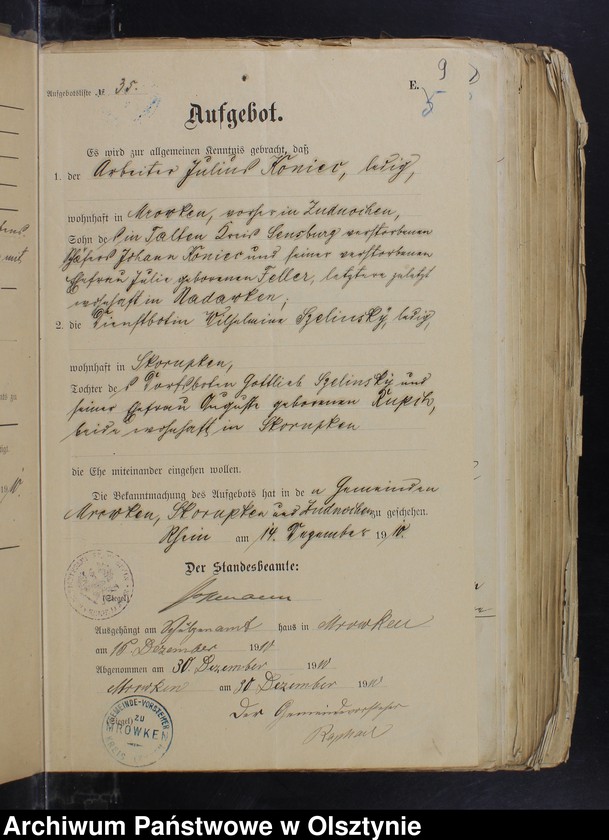 9
Aufgebotsliste № 35.
E.
5
Aufgebot.
Es wird zur allgemeinen Kenntnis gebracht, daß
1. der Arbeiter Julius Koniec, ledig,
wohnhaft in Mrowken, vorher in Zudnochen,
Sohn des in Talten Kreis Sensburg verstorbenen
Johann Koniec und seiner verstorbenen
Ehefrau Julie geborenen Feller, letztere zuletzt
wohnhaft in Nadawken;
2. die Dienstbotin Wilhelmine Szelinsky, ledig,
wohnhaft in Skorupken,
Tochter des Dorfsboten Gottlieb Szelinsky und
seiner Ehefrau Auguste geborenen Kupsch,
beide wohnhaft in Skorupken
die Ehe miteinander eingehen wollen.
Die Bekanntmachung des Aufgebots hat in den Gemeinden
Mrowken, Skorupken und Zudnochen zu geschehen.
Rhein am 14. Dezember 1910.
Der Standesbeamte:
(Siegel)
Ausgehängt am Schulzenamt haus in Mrowken
am 16 Dezember 1910
Abgenommen am 30 Dezember 1910
Mrowken am 30 Dezember 1910
(Siegel)
GEMEINDE-VORSTEHER
ZU
MROWKEN
KREIS
Der Gemeindevorsteher
Raphael
Archiwum Państwowe w Olsztynie